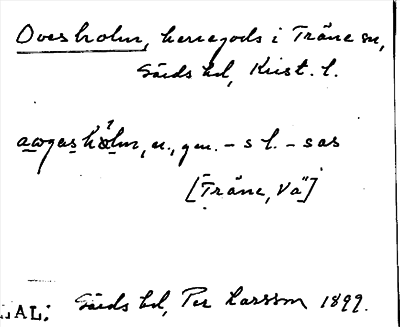 Ovesholm, herregods i Träne sn,
Gärds hd, Krist. l.
awgashölm, n., gen. – s l. – sas
[Träne, Vä]
LAL: Gärds hd, Per Larsson 1899.